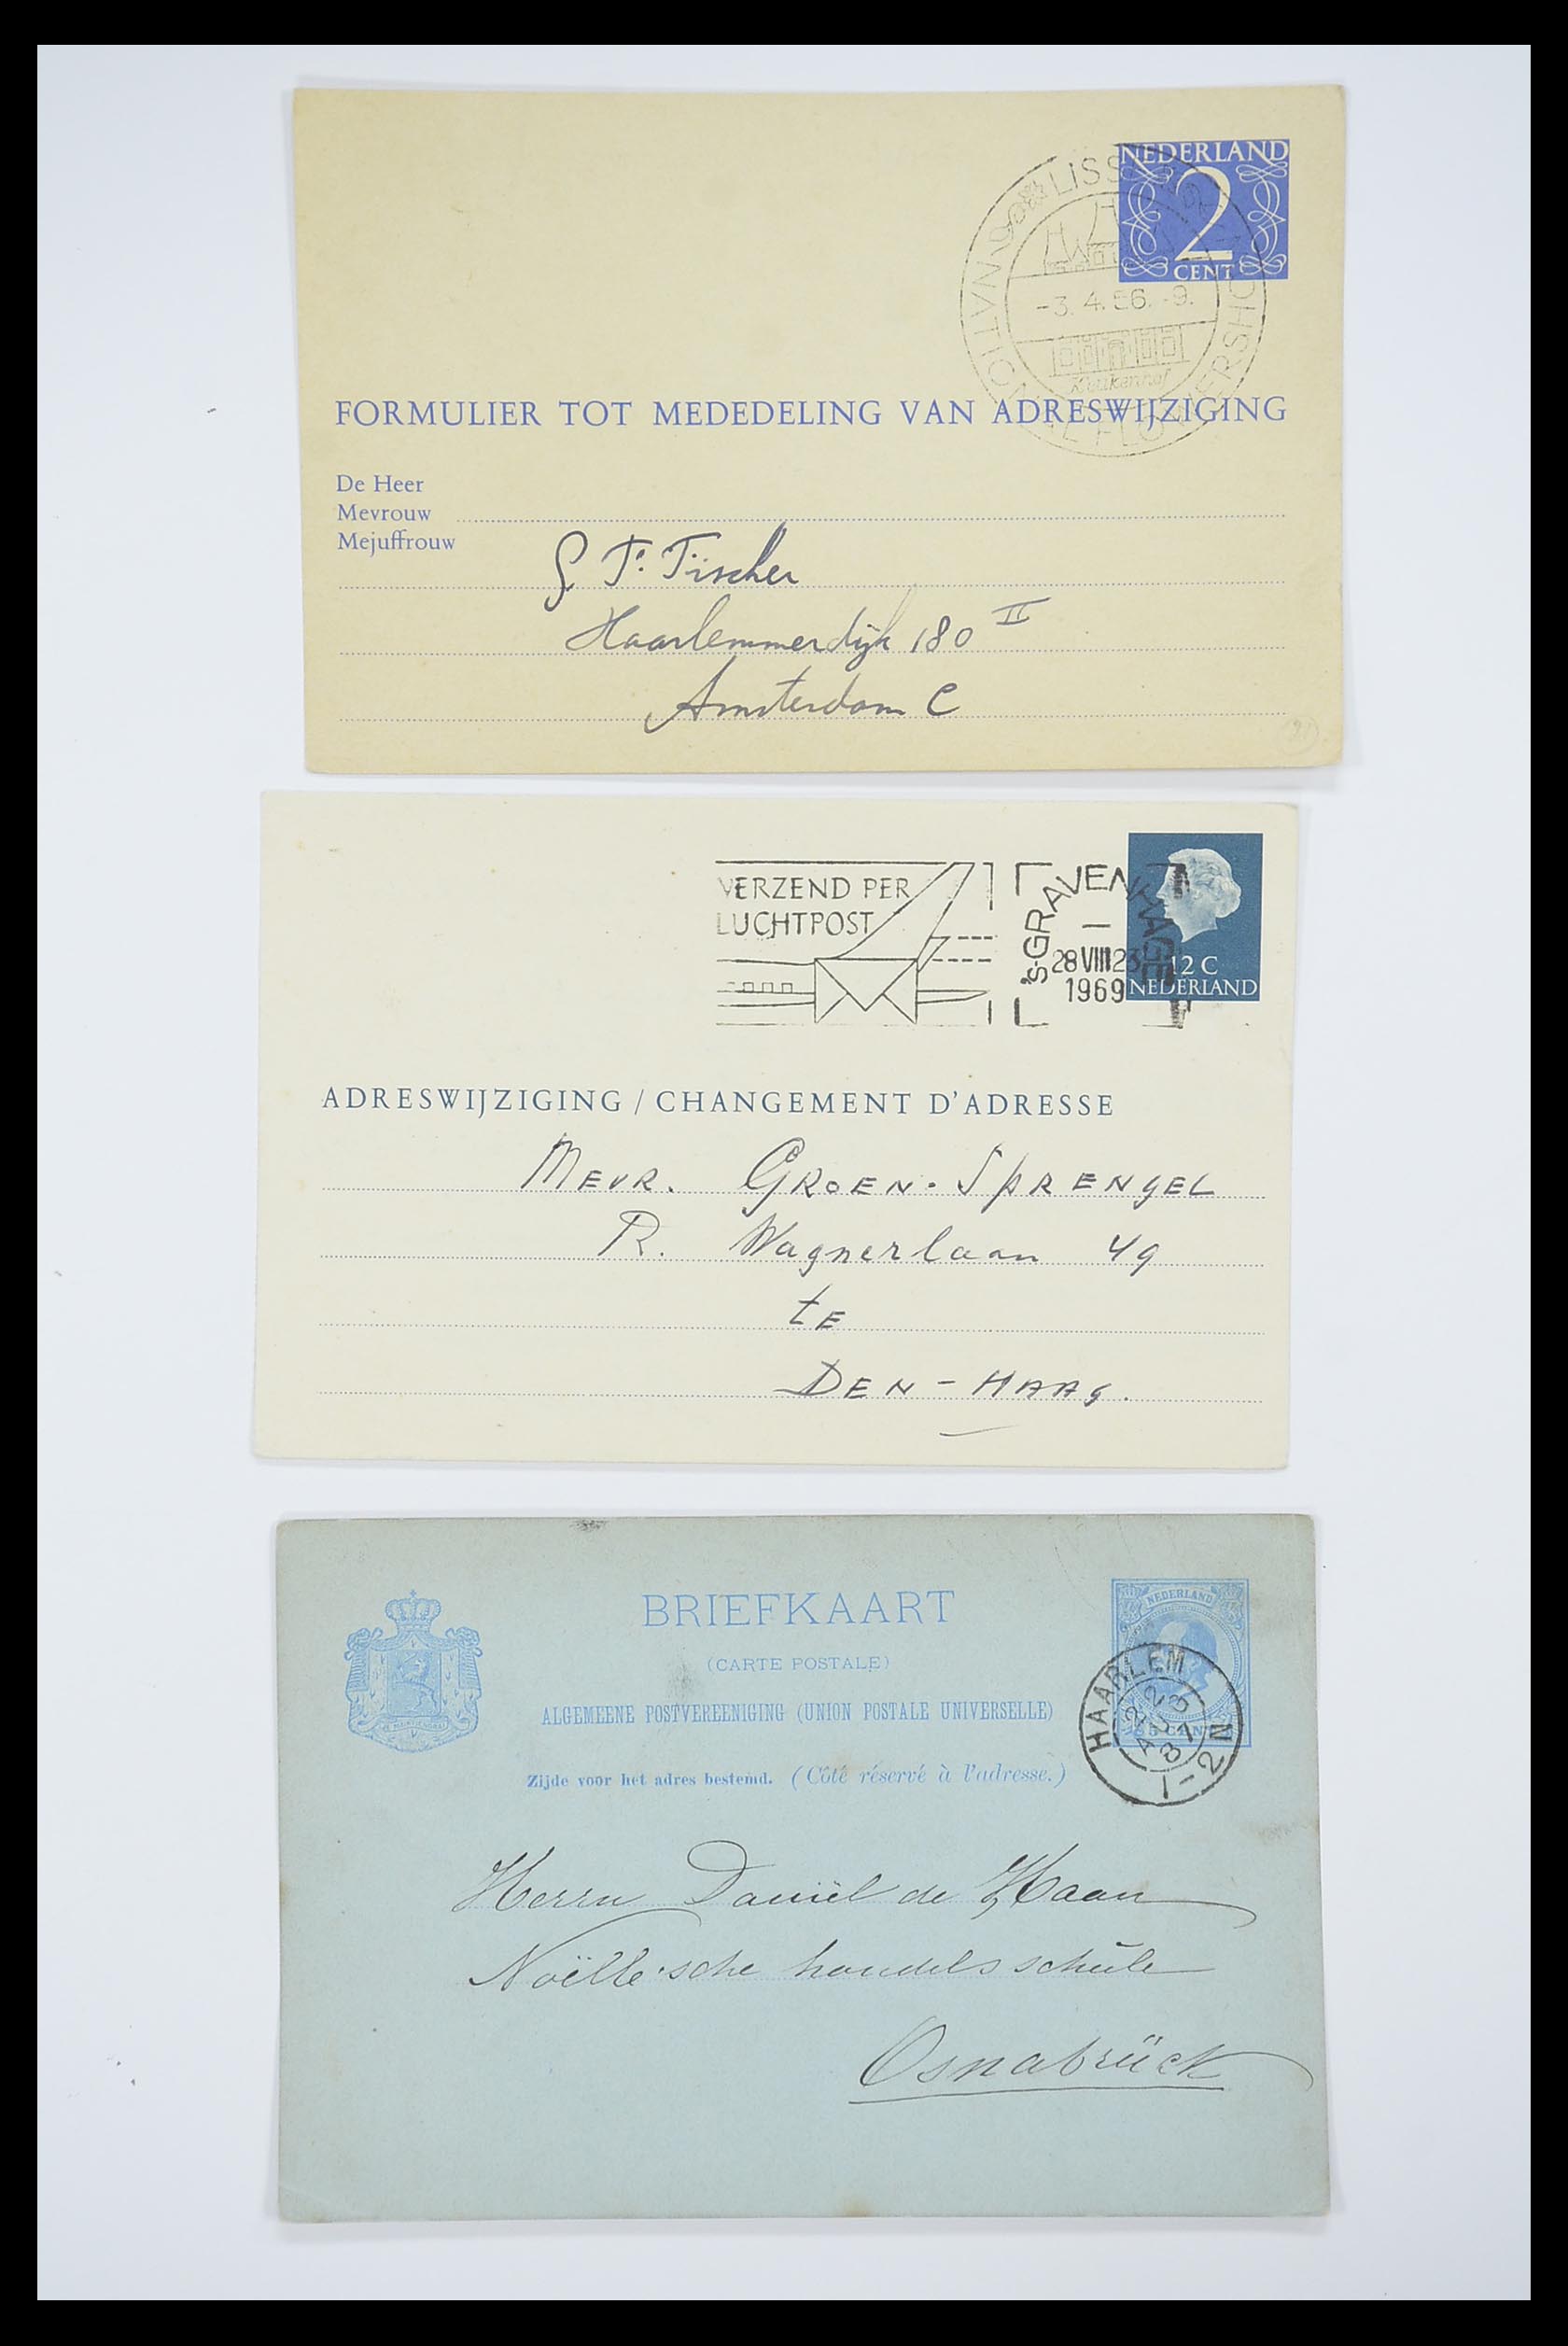 NEDERLAND
2
CENT
-3.4.56.-9.
Keukenhof
FORMULIER TOT MEDEDELING VAN ADRESWIJZIGING
De Heer
Mevrouw
Mejuffrouw
F. Fischer
Haarlemmerdijk 180 II
Amsterdam C
VERZEND PER
LUCHTPOST
's-GRAVENHAGE
28 VIII 23
1969
12 C
NEDERLAND
ADRESWIJZIGING / CHANGEMENT D'ADRESSE
MEVR. GROEN-SPRENGEL
R. Wagnerlaan 49
tE
DEN-HAAG.
BRIEFKAART
(CARTE POSTALE)
ALGEMEENE POSTVEREENIGING (UNION POSTALE UNIVERSELLE)
Zijde voor het adres bestemd. (Côté réservé à l'adresse.)
NEDERLAND
5 CENT
HAARLEM
22 23
AUG
87
1-2N
Herrn Daniël de Haan
Noëlle'sche handelsschule
Osnabrück